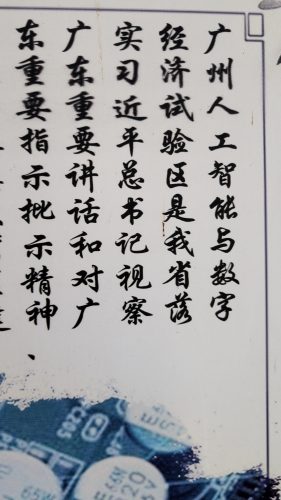 广州人工智能与数字
经济试验区是我省落
实习近平总书记视察
广东重要讲话和对广
东重要指示批示精神、